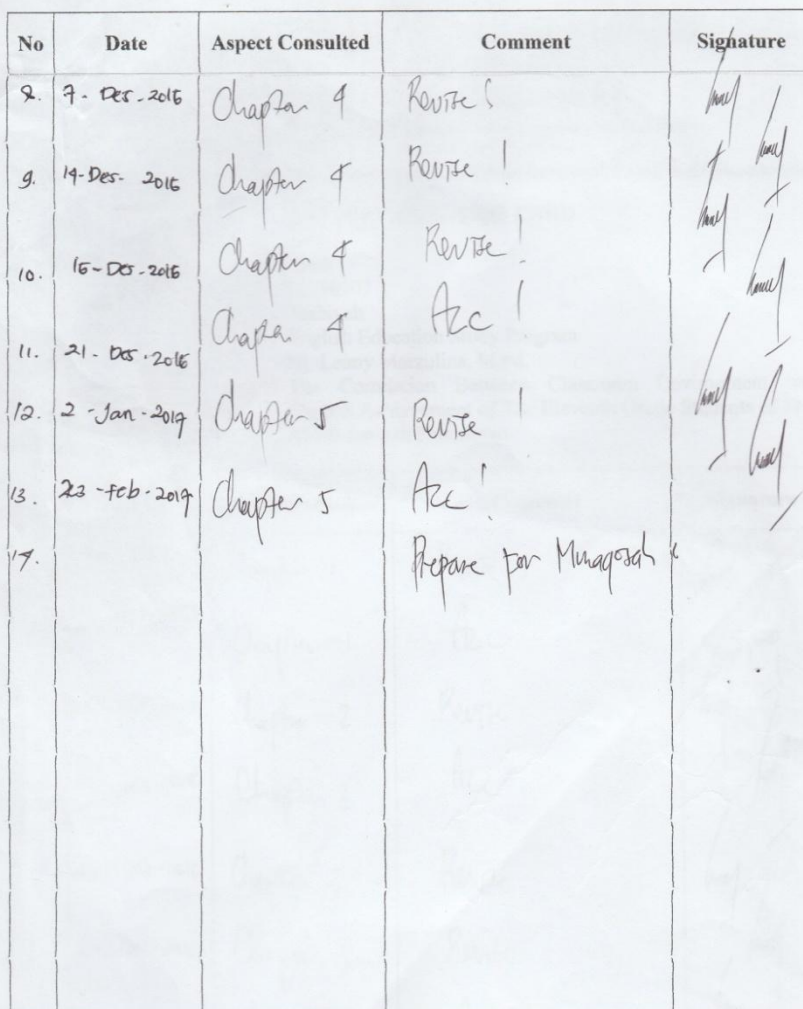 No Date Aspect Consulted Comment Signature
8. 7 - Des - 2016 Chapter 4 Revise!
9. 14 - Des - 2016 Chapter 4 Revise!
10. 15 - Des - 2016 Chapter 4 Revise!
11. 21 - Des - 2016 Chapter 4 Acc!
12. 2 - Jan - 2017 Chapter 5 Revise!
13. 23 - feb - 2017 Chapter 5 Acc!
14. Prepare for Munaqosah